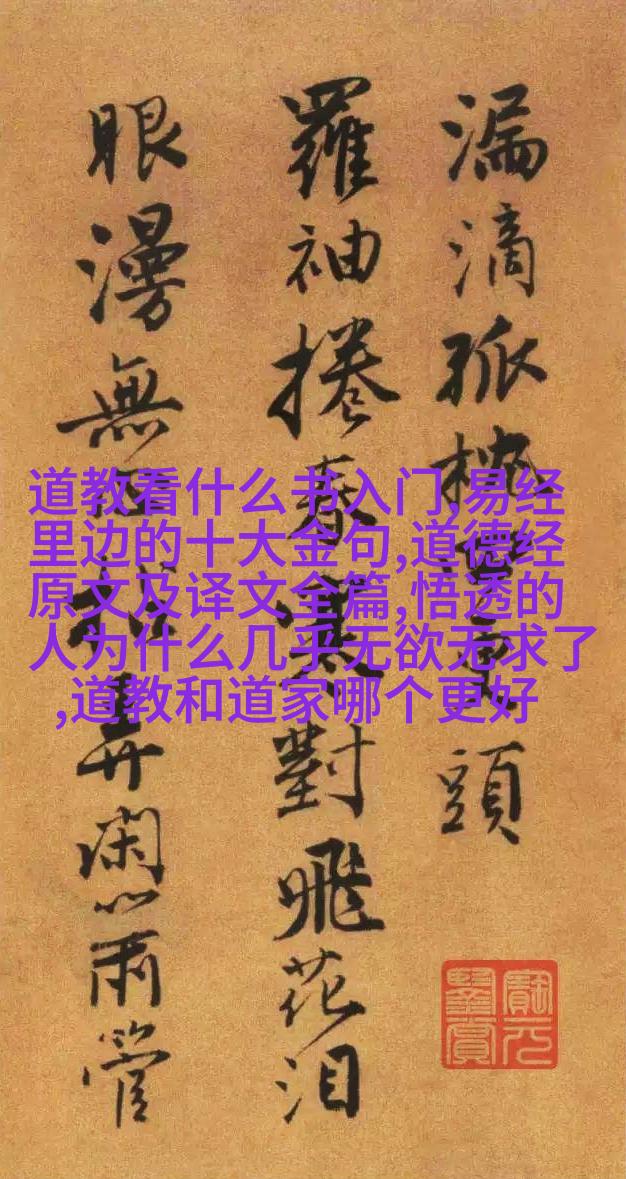 道教看什么书入门,易经
里边的十大金句,道德经
原文及译文全篇,悟透的
人为什么几乎无欲无求了
,道教和道家哪个更好
漏滴孤頭
羅袖捲春寒對飛花泪
眼漫無弄閑心兩管